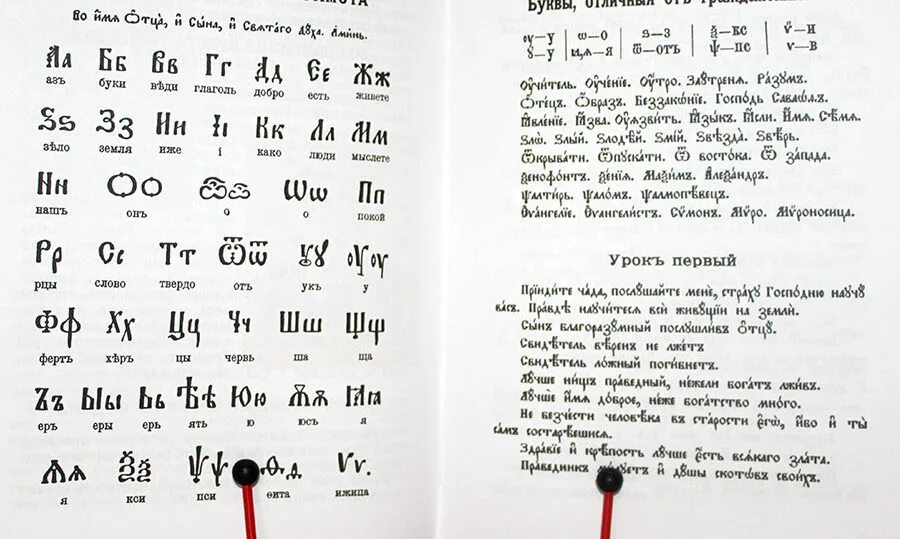 Во и҆́мѧ Ѻ҆тца̀, и҆ Сы́на, и҆ Свѧта́гѡ Дꙋ́ха. А҆ми́нь.
Аа Бб Вв Гг Дд Єє Жж
азъ буки вѣди глаголь добро есть живете
Ѕѕ Зз Ии Іі Кк Лл Мм
зѣло земля иже і како люди мыслете
Нн Ѻѻ Ѽѽ Ѡѡ Пп
нашъ онъ о о покой
Рр Сс Тт Ѿѿ Ꙋꙋ Ѹѹ
рцы слово твердо отъ укъ у
Фф Хх Цц Чч Шш Щщ
фертъ хѣръ цы червь ша ща
Ъъ Ыы Ьь Ѣѣ Юю Ѫѫ Ꙗꙗ
еръ еры ерь ять ю юсъ я
Ѧѧ Ѯѯ Ѱѱ Ѳѳ Ѵѵ.
я кси пси ѳита ижица
Буквы, отличныя отъ
ѹ—у ѡ—О З—З ѯ—КС ѷ—И
ꙋ—у ꙗ,ѧ—Я ѿ—ОТЪ ѱ—ПС ѵ—В
Ѹ҆чи́тель. Ѹ҆че́нїе. Ѹ҆́тро. Заꙋ́тренѧ. Ра́зꙋмъ.
Ѻ҆те́цъ. Ѻ҆́бразъ. Беззако́нїе. Госпо́дь Саваѡ́ѳъ.
Ꙗ҆вле́нїе. Ꙗ҆́зва. Ѹ҆ѧзви́ть. Ꙗ҆зы́къ. Ꙗ҆́сли. И҆́мѧ. Сѣ́мѧ.
Ѕло̀. Ѕлы́й. Ѕлодѣ́й. Ѕмі́й. Ѕвѣзда̀. Ѕвѣ́рь.
Ѿкрыва́ти. Ѿпꙋска́ти. Ѿ восто́ка. Ѿ за́пада.
Ѯенофо́нтъ. Ѯе́нїѧ. Маѯі́мъ. Алеѯа́ндръ.
Ѱалти́рь. Ѱало́мъ. Ѱалмопѣ́вецъ.
Є҆ѵа́нгелїе. Є҆ѵангели́стъ. Сѷмо́нъ. Мѷ́ро. Мѷроно́сица.
Урокъ первый
Прїиди́те ча́да, послꙋ́шайте менѐ, стра́хꙋ Госпо́дню наꙋчꙋ̀
ва́съ. Пра́вдѣ наꙋчи́тесѧ всѝ живꙋ́щїи на землѝ.
Сы́нъ благоразꙋ́мный послꙋшли́въ Ѻ҆тцꙋ̀.
Свидѣ́тель вѣ́ренъ не лже́тъ
Свидѣ́тель ло́жный поги́бнетъ.
Лꙋ́чше ни́щъ пра́ведный, не́жели бога́тъ лжи́въ.
Лꙋ́чше и҆́мѧ до́брое, не́же бога́тство мно́го.
Не безче́сти человѣ́ка въ ста́рости є҆гѡ̀, и҆́бо и҆ ты̀
са́мъ состарѣ́ешисѧ.
Здра́вїе и҆ крѣ́пость лꙋ́чше є҆́сть всѧ́кагѡ зла́та.
Пра́ведникъ и҆ дꙋ́шы ското́въ свои́хъ.